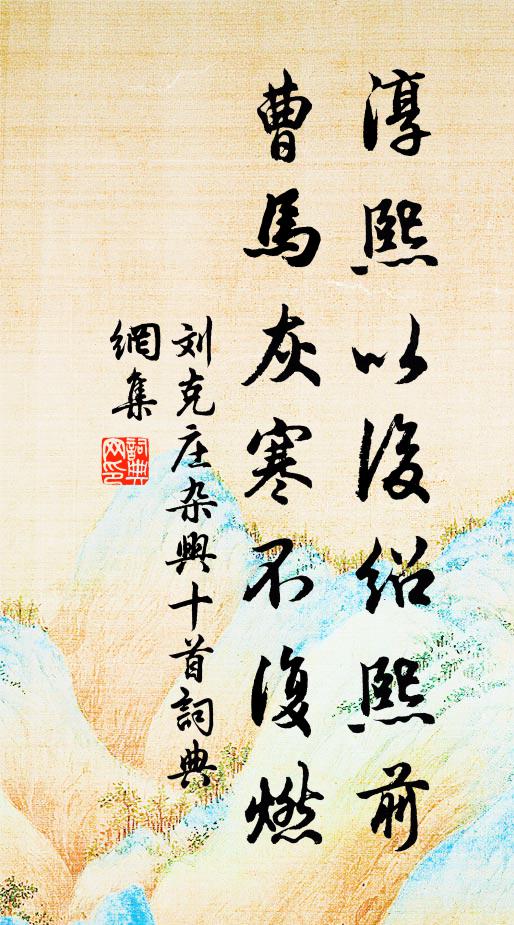 淳熙以後紹熙前
曹馬灰寒不復燃
刘克庄杂興十首詞典
網集
詞典
网印